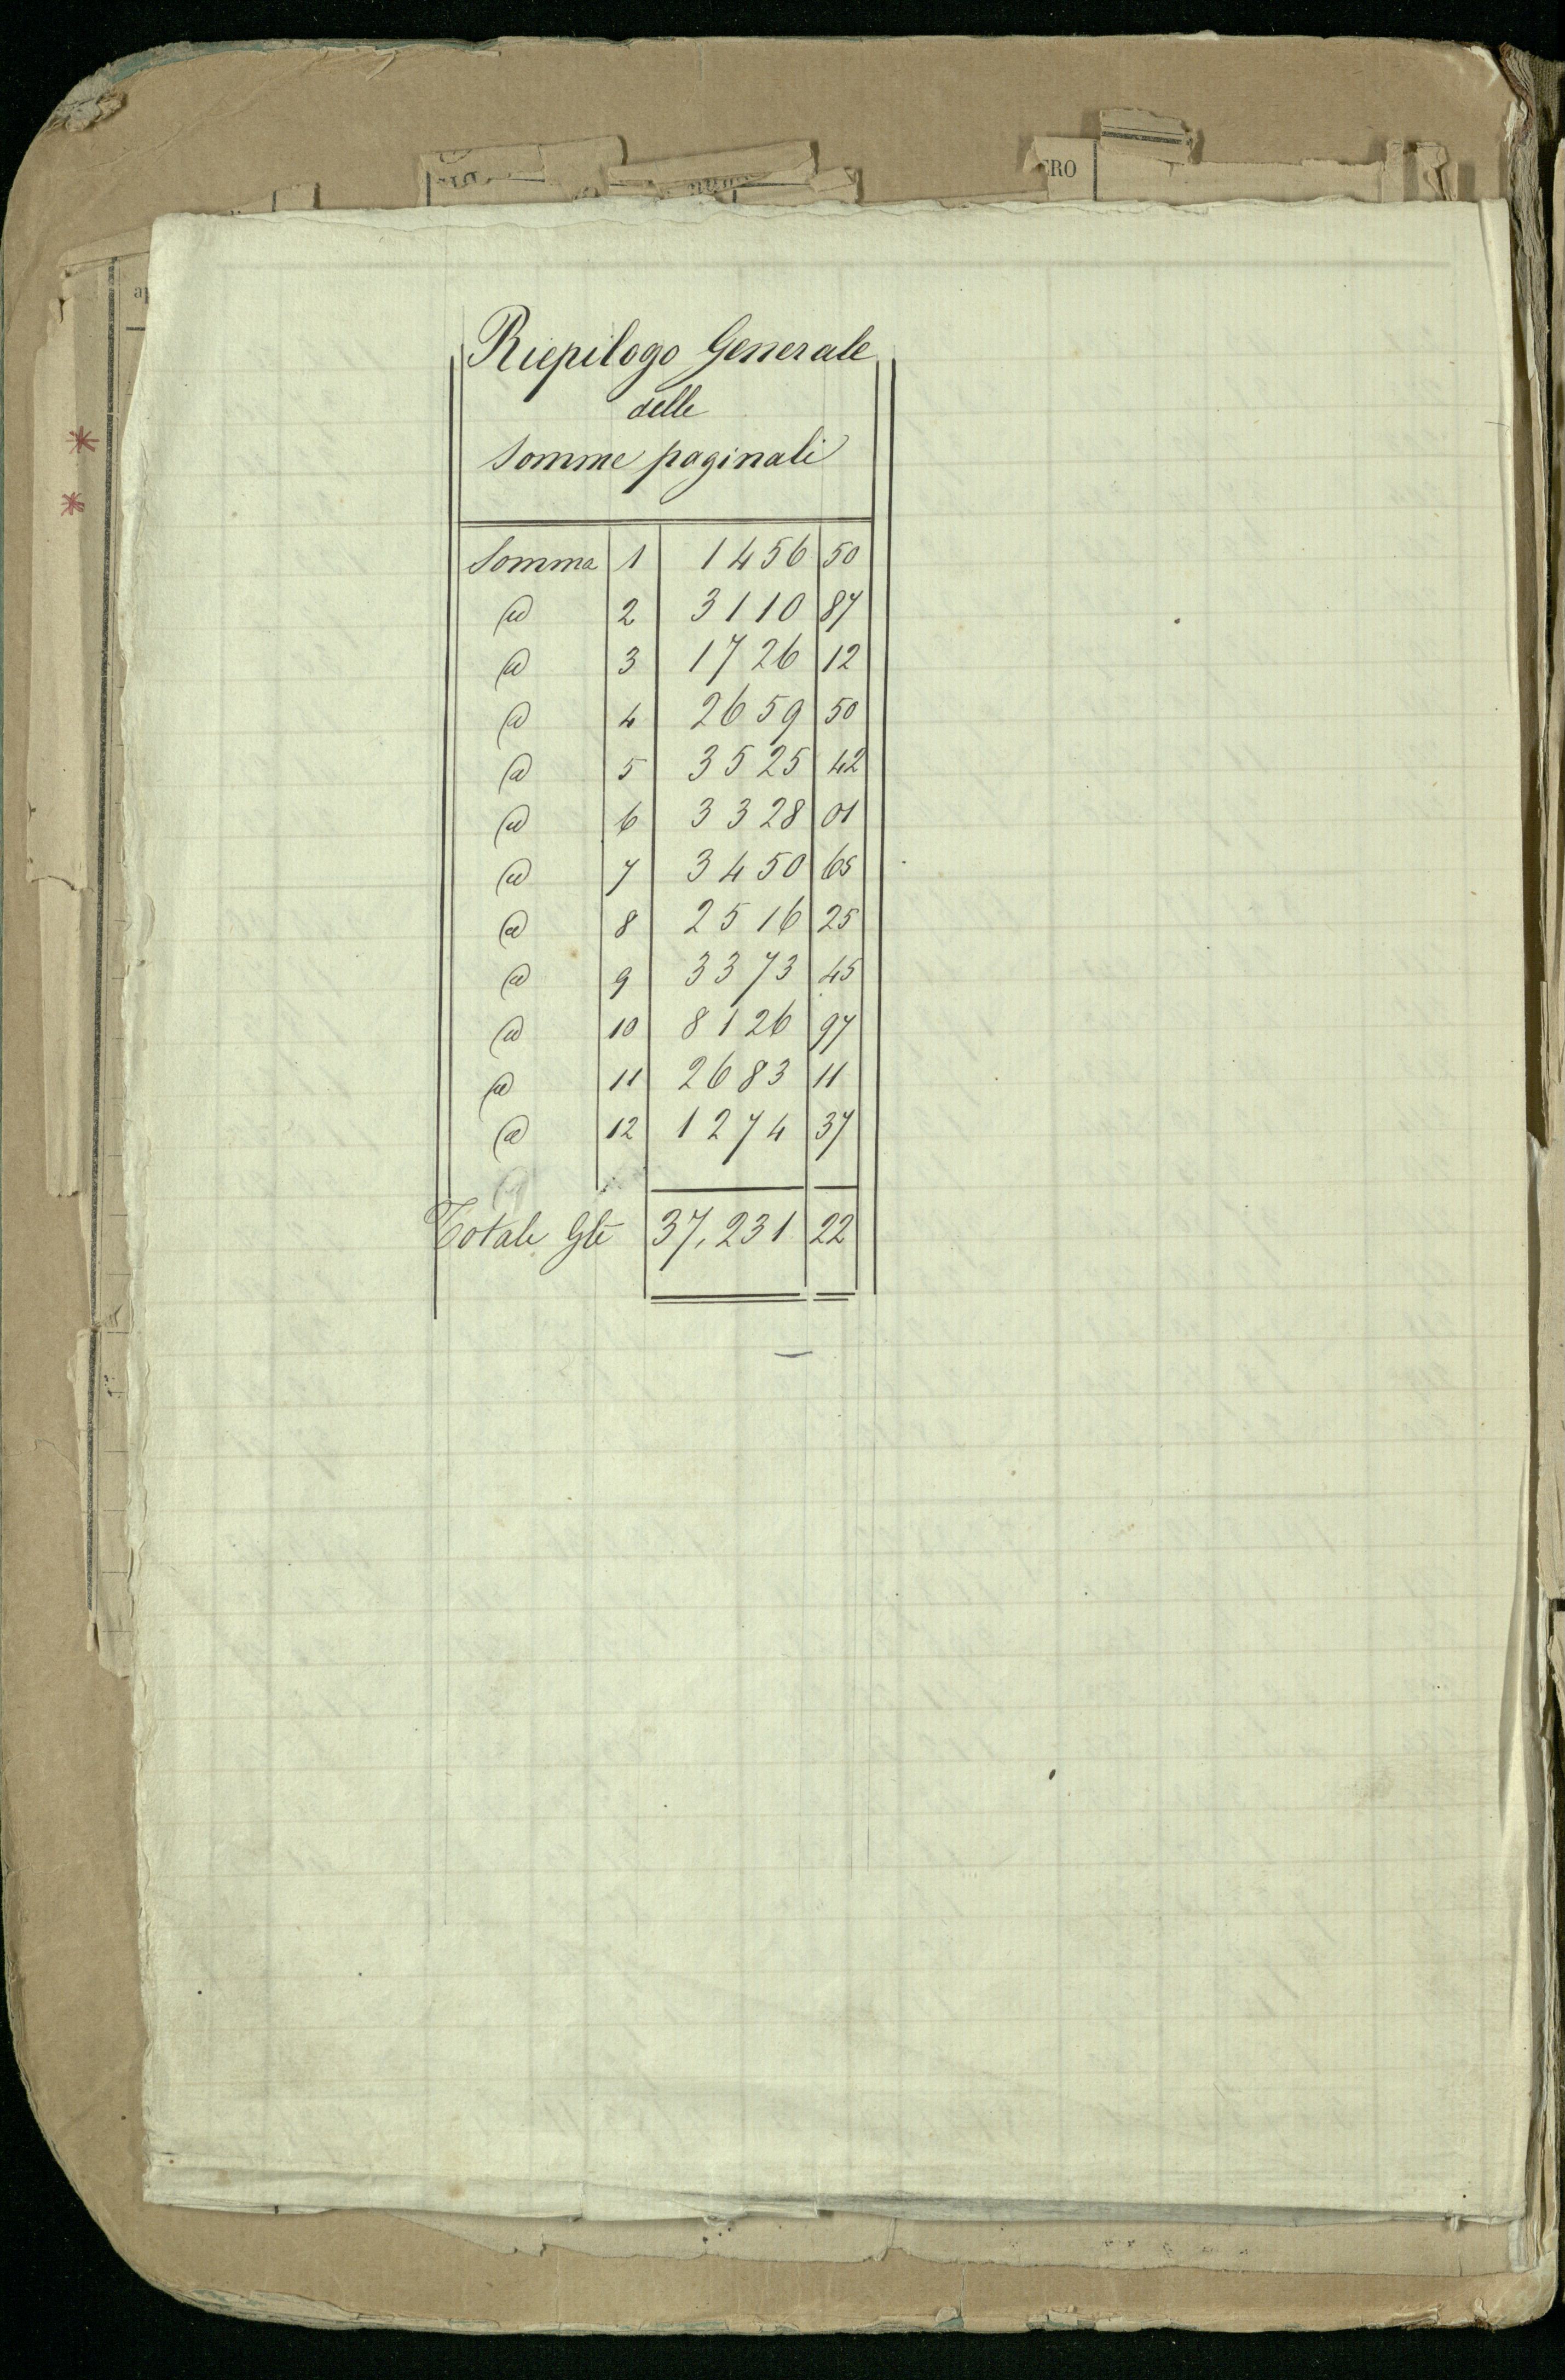 ERO
Riepilogo Generale
delle
Somme paginali
Somma 1 1456 50
@ 2 3110 87
@ 3 1726 12
@ 4 2659 50
@ 5 3525 42
@ 6 3328 01
@ 7 3450 65
@ 8 2516 25
@ 9 3373 45
@ 10 8126 97
@ 11 2683 11
@ 12 1274 37
Totale Gle 37,231 22